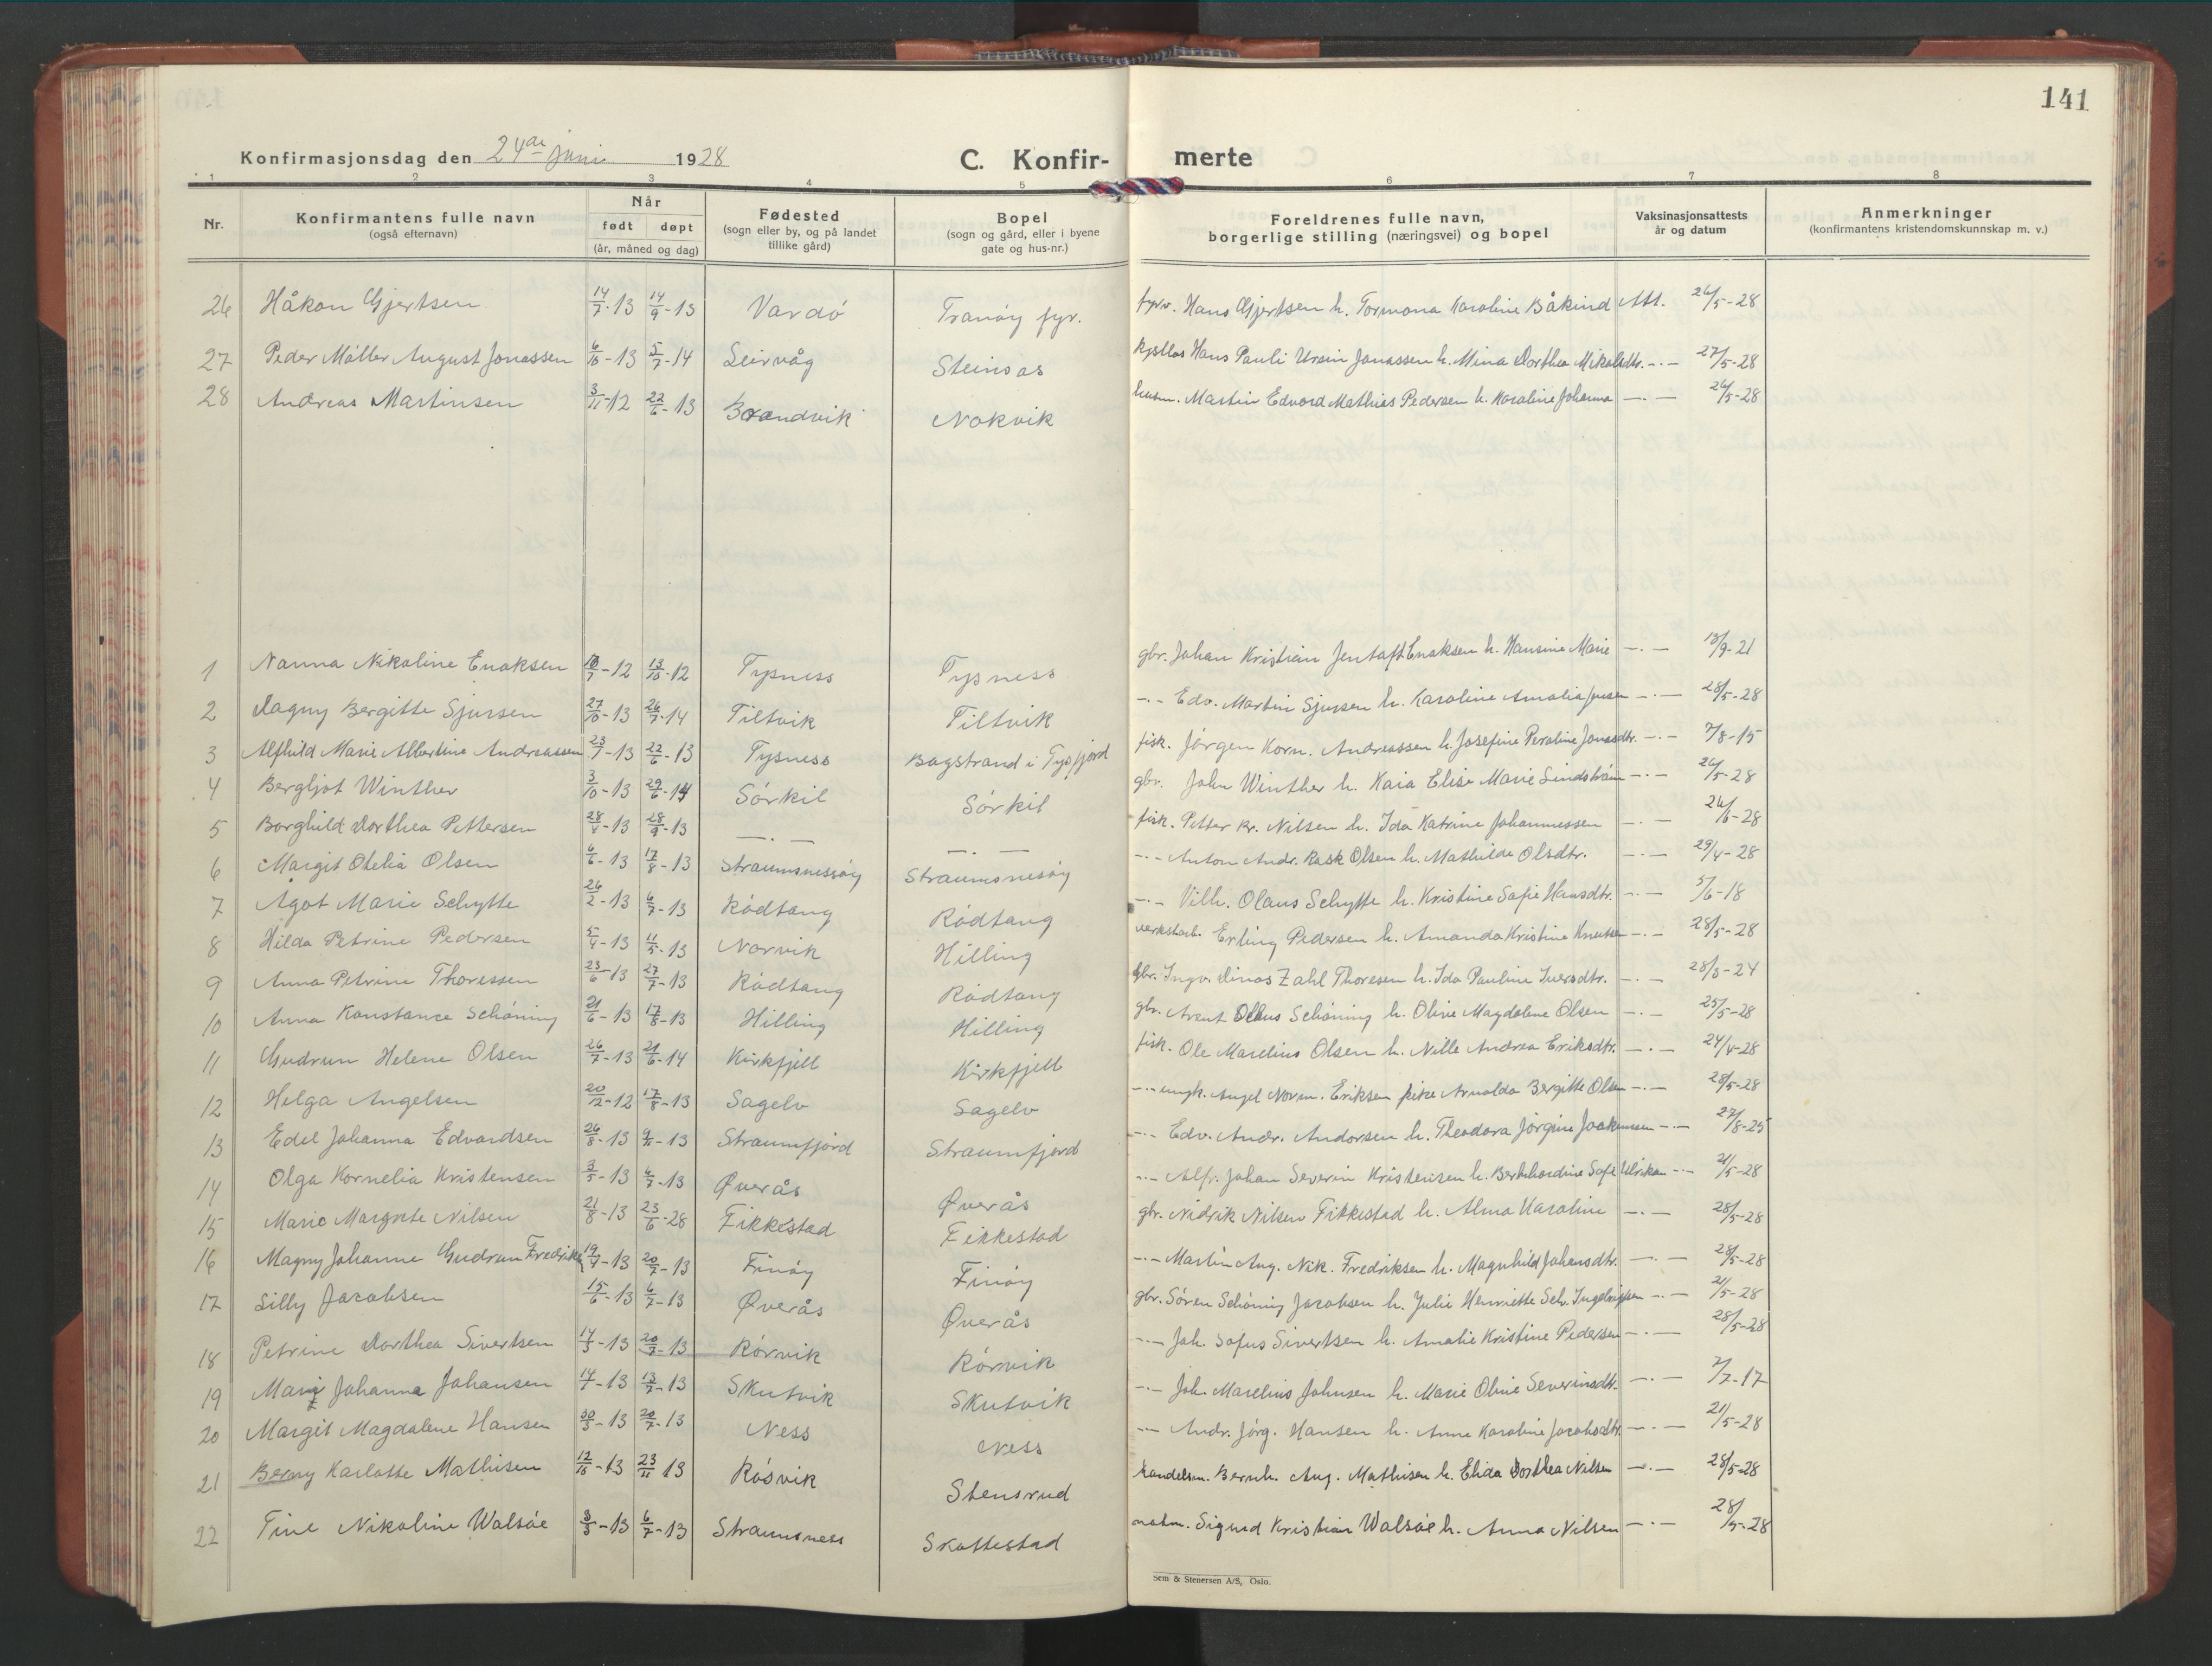 141
Konfirmasjonsdag den 24de juni 1928
C. Konfir- merte
1 2 3 4 5 6 7 8
Nr. Konfirmantens fulle navn (også efternavn) Når født døpt (år, måned og dag) Fødested (sogn eller by, og på landet tillike gård) Bopel (sogn og gård, eller i byene gate og hus-nr.) Foreldrenes fulle navn, borgerlige stilling (næringsvei) og bopel Vaksinasjonsattests år og datum Anmerkninger (konfirmantens kristendomskunnskap m. v.)
26 Håkon Gjertsen 14/7-13 14/9-13 Vardö Tranöy fyr. fyrv. Hans Gjertsen h. Tormona Karoline Båkind Att. 26/5-28
27 Peder Möller August Jonassen 6/10-13 5/7-14 Leirvåg Steinsas Hans Pauli Ursin Jonassen h. Mina Dorthea Mikalsdtr. -.- 27/5-28
28 Andreas Martinsen 3/11-12 22/6-13 Brandvik Nokvik husm. Martin Edvard Mathias Pedersen h. Karoline Johanna -.- 26/5-28
1 Nanna Nikoline Enoksen 18/7-12 13/10-12 Tysness Tysness gbr. Johan Kristian Jentoft Enoksen h. Hansine Marie -.- 13/9-21
2 Dagny Bergitte Sjursen 27/10-13 26/7-14 Tiltvik Tiltvik -.- Edv. Martin Sjursen h. Karoline Amalia Jensen -.- 28/5-28
3 Alfhild Marie Albertine Andreassen 23/7-13 22/6-13 Tysness Bogstrand i Tysfjord fisk. Jörgen Korn. Andreassen h. Josefine Peroline Jonasdtr. -.- 7/8-15
4 Bergljot Winther 3/10-13 29/6-14 Sörkil Sörkil gbr. John Winther h. Kaia Elise Marie Lindström -.- 26/5-28
5 Borghild Dorthea Pettersen 28/4-13 28/9-13 -.- -.- fisk. Petter Kr. Nilsen h. Ida Katrine Johannessen -.- 26/6-28
6 Margit Otelia Olsen 6/6-13 17/8-13 Straumsnesöy Straumsnesöy -.- Anton Andr. Rask Olsen h. Mathilde Olsdtr. -.- 29/4-28
7 Ågot Marie Schytte 26/2-13 6/7-13 Rödtang Rödtang -.- Vilh. Olaus Schytte h. Kristine Sofie Hansdtr. -.- 5/6-18
8 Hilda Petrine Pedersen 5/4-13 11/5-13 Norvik Hilling verkstarb. Erling Pedersen h. Amanda Kristine Knutsen -.- 28/5-28
9 Anna Petrine Thoressen 23/6-13 27/7-13 Rödtang Rödtang gbr. Ingv. Dinas Zahl Thoresen h. Ida Pauline Iversdtr. -.- 28/3-24
10 Anna Konstance Schöning 21/6-13 17/8-13 Hilling Hilling gbr. Arent Olaus Schöning h. Olive Magdalene Olsen -.- 25/5-28
11 Gudrun Helene Olsen 26/7-13 21/6-14 Kirkfjell Kirkfjell fisk. Ole Marelius Olsen h. Nille Andrea Eriksdtr. -.- 24/4-28
12 Helga Angelsen 20/12-12 17/8-13 Sagelv Sagelv -.- ungk. Angel Norm. Eriksen pike Arnolda Bergitte Olsen -.- 28/5-28
13 Edel Johanna Edvardsen 26/8-13 9/11-13 Straumfjord Straumfjord -.- Edv. Andr. Andorsen h. Theodora Jörgine Joakimsen -.- 27/8-25
14 Olga Kornelia Kristensen 3/5-13 6/7-13 Øverås Øverås -.- Alfr. Johan Severin Kristensen h. Bernhardine Sofie Ulrikan -.- 21/5-28
15 Marie Margrete Nilsen 21/8-13 23/6-28 Fikkestad Fikkestad gbr. Nidrik Nilsen Fikkestad h. Alma Karoline -.- 28/5-28
16 Magny Johanne Gudrun Fredriks 19/4-13 20/7-13 Finöy Finöy -.- Martin Aug. Nik. Fredriksen h. Magnhild Johansdtr. -.- 28/5-28
17 Lilly Jacobsen 15/6-13 6/7-13 Øverås Øverås gbr. Sören Schöning Jacobsen h. Julie Henriette Selv. Ingebrigtsen -.- 21/5-28
18 Petrine Dorthea Sivertsen 14/3-13 20/7-13 Rörvik Rörvik -.- Joh. Sofus Sivertsen h. Amalie Kristine Pedersen -.- 28/5-28
19 Marie Johanna Johansen 14/4-13 13/7-13 Skutvik Skutvik -.- Joh. Marelius Johnsen h. Marie Oline Severinsdtr. -.- 7/7-17
20 Margit Magdalene Hansen 30/3-13 20/7-13 Ness Ness -.- Andr. Jörg. Hansen h. Anne Karoline Jacobsdtr. -.- 21/5-28
21 Berny Karlotte Mathisen 12/10-13 23/11 13 Rösvik Stensrud handelsm. Bernh. Aug. Mathisen h. Elida Dorthea Nilsen -.- 28/5-28
22 Tine Nikoline Walsöe 3/3-13 6/7-13 Straumsness Skottestad Sigurd Kristian Walsöe h. Anna Nilsen -.- 28/5-28
Sem & Stenersen A/S, Oslo.